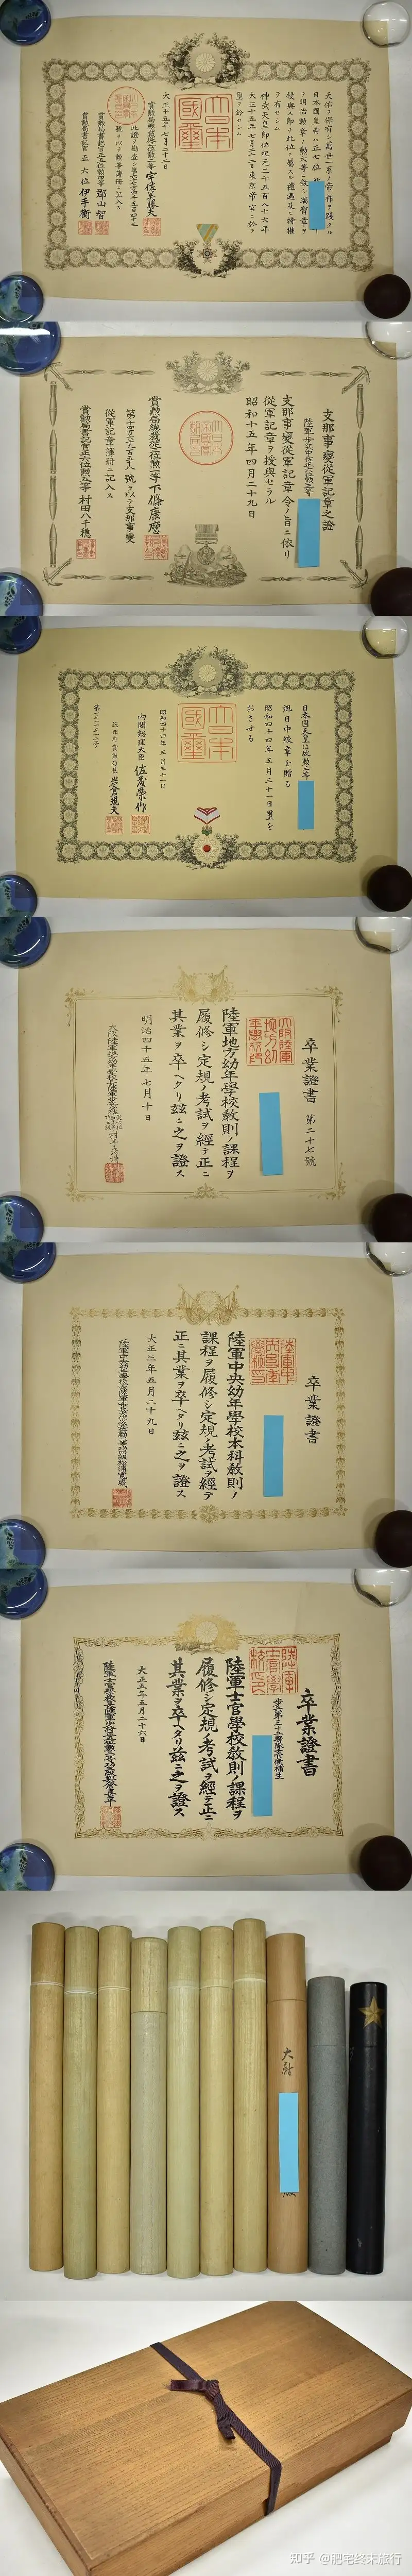 天佑ヲ保有シ萬世一系ノ帝祚ヲ踐タル
日本國皇帝ハ正七位
ヲ明治勲章ノ勲六等ニ敍シ瑞寶章ヲ
授與ス即チ此位ニ屬スル禮遇及ヒ特權
ヲ有セシム
神武天皇即位紀元二千五百八十六年
大正十五年七月二十二日東京帝宮ニ於テ
璽ヲ鈐セシム
大日本國璽
大正十五年七月二十二日
此證ヲ勘査シ
號ヲ以テ勲等簿冊ニ記入ス
支那事變從軍記章之證
支那事變從軍記章令ノ旨ニ依リ
從軍記章ヲ授與セラル
昭和十五年四月二十九日
賞勲局總裁從三位勲一等下條康麿
號ヲ以テ支那事變
從軍記章簿冊ニ記入ス
賞勲局書記官正六位勲五等村田八千穂
日本国天皇は故勲三等
旭日中綬章を贈る
昭和四十四年五月三十一日璽を
おさせる
大日本國璽
昭和四十四年五月三十一日
内閣総理大臣佐藤榮作
総理府賞勲局長岩倉規夫
卒業證書
第二十七號
陸軍地方幼年學校教則ノ課程ヲ
履修シ定規ノ考試ヲ經テ正ニ
其業ヲ卒ヘタリ茲ニ之ヲ證ス
明治四十五年七月十日
卒業證書
陸軍中央幼年學校本科教則ノ
課程ヲ履修シ定規ノ考試ヲ經テ
正ニ其業ヲ卒ヘタリ茲ニ之ヲ證ス
大正三年五月二十九日
卒業證書
陸軍士官學校教則ノ課程ヲ
履修シ定規ノ考試ヲ經テ正ニ
其業ヲ卒ヘタリ茲ニ之ヲ證ス
大正五年五月二十六日
大尉
知乎 @肥宅终末旅行